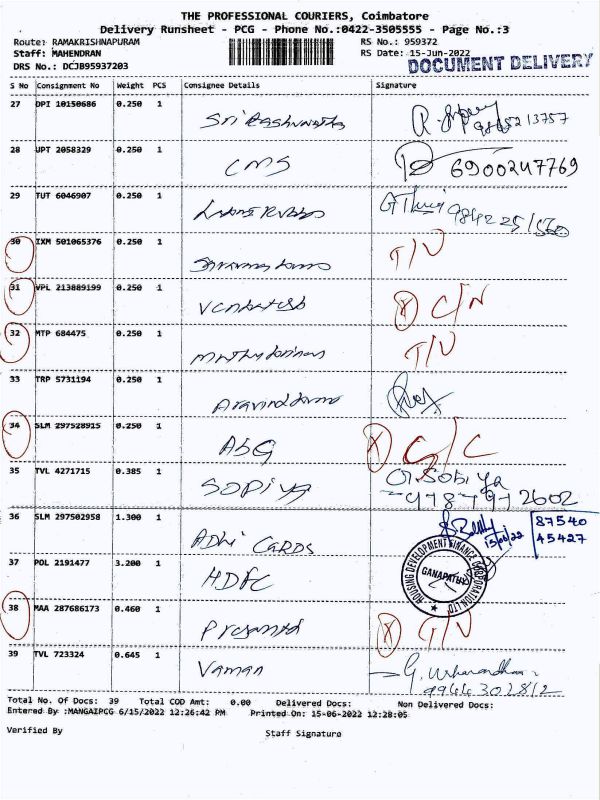 THE PROFESSIONAL COURIERS, Coimbatore
Delivery Runsheet - PCG - Phone No.:0422-3505555 - Page No.:3
Route: RAMAKRISHNAPURAM RS No.: 959372
Staff: MAHENDRAN RS Date: 15-Jun-2022
DRS No.: DCJB95937203 DOCUMENT DELIVERY
S No Consignment No Weight PCS Consignee Details Signature
27 DPI 10150686 0.250 1
28 UPT 2058329 0.250 1 CMS 6900247769
29 TUT 6046907 0.250 1
30 IXM 501065376 0.250 1 T/V
31 VPL 213889199 0.250 1 Venkatesh C/N
32 MTP 684475 0.250 1 T/V
33 TRP 5731194 0.250 1
34 SLM 297528915 0.250 1 ABG C/C
35 TVL 4271715 0.385 1 SOPIYA G. Sobiya
36 SLM 297502958 1.300 1 ADhi CARDS 15/06/22 87540
45427
37 POL 2191477 3.200 1 HDFC
HOUSING DEVELOPMENT FINANCE CORPORATION LTD.
38 MAA 287686173 0.460 1 T/V
39 TVL 723324 0.645 1 Vaman
9944302812
Total No. Of Docs: 39 Total COD Amt: 0.00 Delivered Docs: Non Delivered Docs:
Entered By :MANGAIPCG 6/15/2022 12:26:42 PM Printed On: 15-06-2022 12:28:05
Verified By Staff Signature